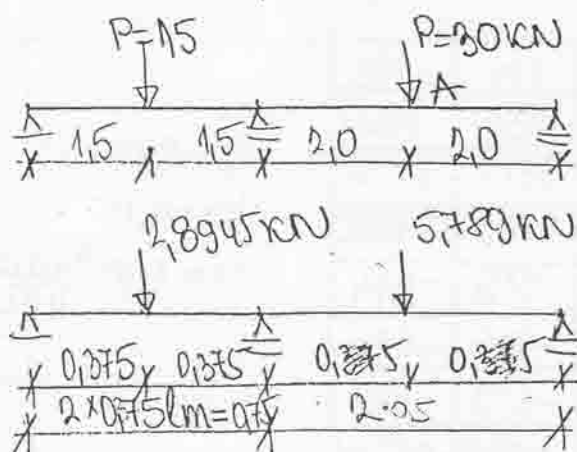 P=15 P=30KN
A
1,5 1,5 2,0 2,0
2,8945KN 5,789KN
0,375 0,375
2×0,375lm=0,75 2·05